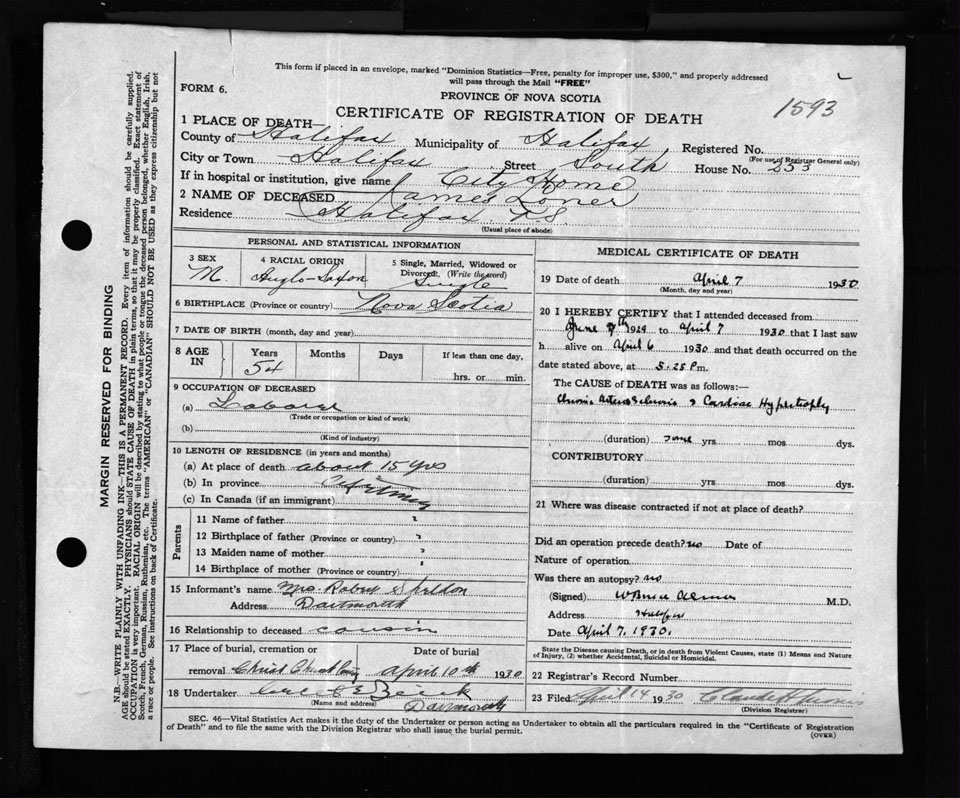 This form if placed in an envelope, marked "Dominion Statistics—Free, penalty for improper use, $300," and properly addressed
will pass through the Mail "FREE"
FORM 6.
PROVINCE OF NOVA SCOTIA
1593
CERTIFICATE OF REGISTRATION OF DEATH
1 PLACE OF DEATH—
County of Halifax Municipality of Halifax Registered No.
(For use of Registrar General only)
City or Town Halifax Street South House No. 253
If in hospital or institution, give name City Home
2 NAME OF DECEASED James Loner
Residence Halifax N.S.
(Usual place of abode)
PERSONAL AND STATISTICAL INFORMATION
3 SEX 4 RACIAL ORIGIN 5 Single, Married, Widowed or Divorced. (Write the word)
M Anglo-Saxon Single
6 BIRTHPLACE (Province or country) Nova Scotia
7 DATE OF BIRTH (month, day and year)
8 AGE IN Years Months Days If less than one day,
54 hrs. or min.
9 OCCUPATION OF DECEASED
(a) Laborer
(Trade or occupation or kind of work)
(b)
(Kind of industry)
10 LENGTH OF RESIDENCE (in years and months)
(a) At place of death about 15 yrs
(b) In province Lifetime
(c) In Canada (if an immigrant)
Parents
11 Name of father ?
12 Birthplace of father (Province or country) ?
13 Maiden name of mother ?
14 Birthplace of mother (Province or country) ?
15 Informant's name Mrs Robert
Address Dartmouth
16 Relationship to deceased cousin
17 Place of burial, cremation or Date of burial
removal Christ Church April 10th 1930
18 Undertaker
(Name and address) Dartmouth
MEDICAL CERTIFICATE OF DEATH
19 Date of death April 7 1930
(Month, day and year)
20 I HEREBY CERTIFY that I attended deceased from
June 7th 1929 to April 7 1930 that I last saw
h alive on April 6 1930 and that death occurred on the
date stated above, at 5.25 P.m.
The CAUSE of DEATH was as follows:—
Chronic Arterio Sclerosis & Cardiac Hypertrophy
(duration) some yrs mos dys.
CONTRIBUTORY
(duration) yrs mos dys.
21 Where was disease contracted if not at place of death?
Did an operation precede death? no Date of
Nature of operation
Was there an autopsy? no
(Signed) W Bruce Almon M.D.
Address Halifax
Date April 7, 1930.
State the Disease causing Death, or in death from Violent Causes, state (1) Means and Nature
of Injury, (2) whether Accidental, Suicidal or Homicidal.
22 Registrar's Record Number
23 Filed April 14 1930
(Division Registrar)
SEC. 46—Vital Statistics Act makes it the duty of the Undertaker or person acting as Undertaker to obtain all the particulars required in the "Certificate of Registration
of Death" and to file the same with the Division Registrar who shall issue the burial permit.
(OVER)
MARGIN RESERVED FOR BINDING
N.B.—WRITE PLAINLY WITH UNFADING INK—THIS IS A PERMANENT RECORD. Every item of information should be carefully supplied.
AGE should be stated EXACTLY. PHYSICIANS should STATE CAUSE OF DEATH in plain terms, so that it may be properly classified. Exact statement of
OCCUPATION is very important. RACIAL ORIGIN will be described by stating to what people or tongue the deceased person belonged, whether English, Irish,
Scotch, French, German, Russian, Ruthenian, etc. The terms "AMERICAN" or "CANADIAN" SHOULD NOT BE USED as they express citizenship but not
a race or people. See instructions on back of Certificate.